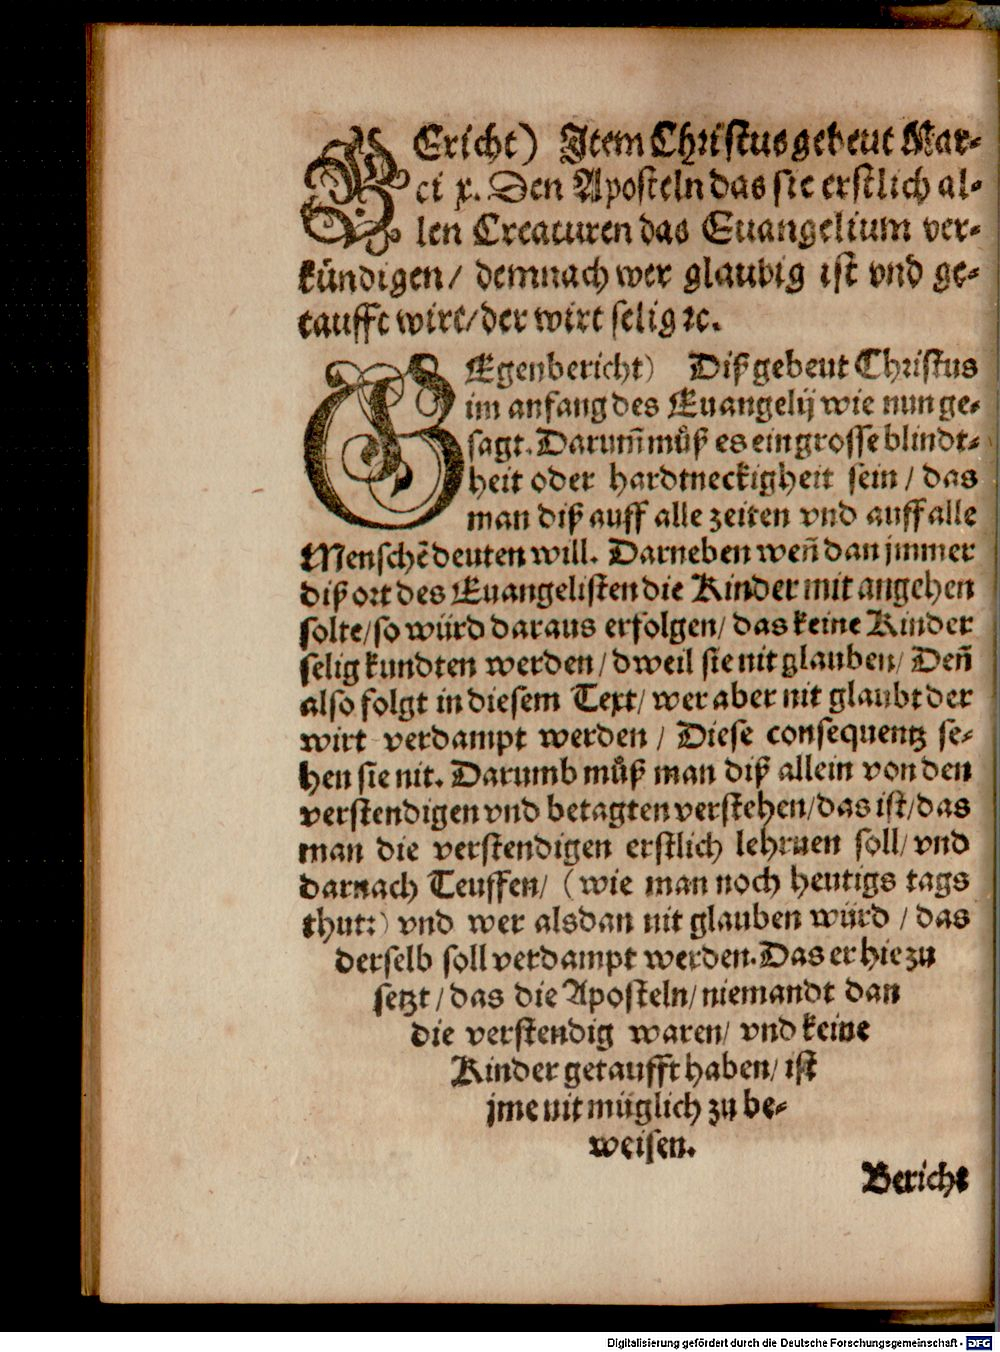 BEricht) Item Christus gebeut Mar-
ci x. Den Aposteln das sie erstlich al-
len Creaturen das Euangelium ver-
kündigen/ demnach wer glaubig ist vnd ge-
taufft wirt/der wirt selig ꝛc.
GEgenbericht) Diß gebeut Christus
im anfang des Euangelij wie nun ge-
sagt. Darum̃ můß es ein grosse blindt-
heit oder hardtneckigheit sein / das
man diß auff alle zeiten vnd auff alle
Menschẽ deuten will. Darneben weñ dan jmmer
diß ort des Euangelisten die Kinder mit angehen
solte/so würd daraus erfolgen/ das keine Kinder
selig kundten werden/ dweil sie nit glauben/ Deñ
also folgt in diesem Text/ wer aber nit glaubt der
wirt verdampt werden / Diese consequentz se-
hen sie nit. Darumb můß man diß allein von den
verstendigen vnd betagten verstehen/das ist/das
man die verstendigen erstlich lehrnen soll/ vnd
darnach Teuffen/ (wie man noch heutigs tags
thut:) vnd wer alsdan nit glauben würd / das
derselb soll verdampt werden. Das er hie zu
setzt / das die Aposteln/ niemandt dan
die verstendig waren/ vnd keine
Kinder getaufft haben/ ist
jme nit müglich zu be-
weisen.
Bericht
Digitalisierung gefördert durch die Deutsche Forschungsgemeinschaft - DFG